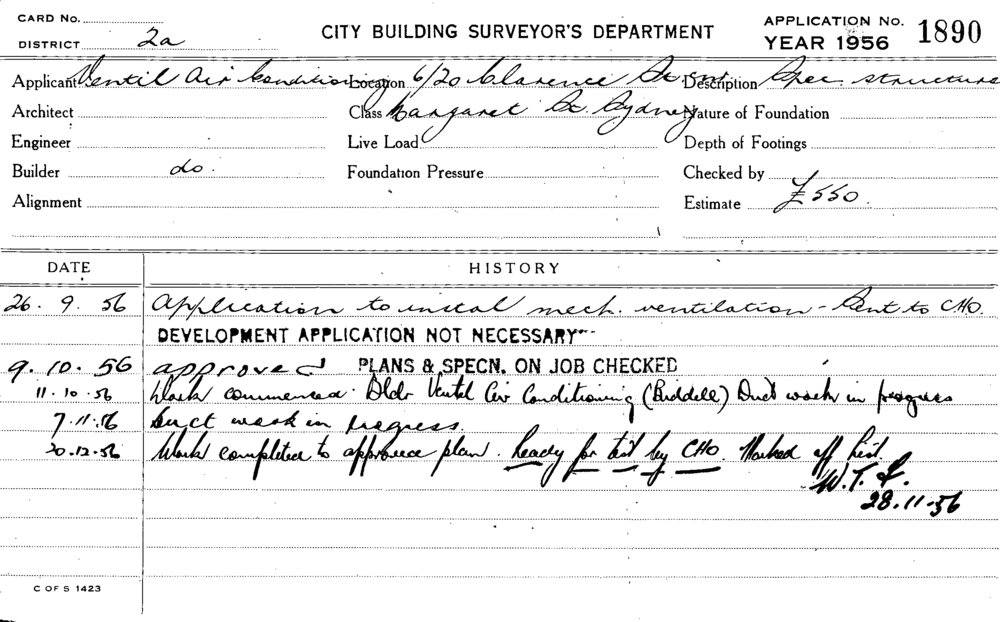 CARD No.
DISTRICT 2a
CITY BUILDING SURVEYOR'S DEPARTMENT
APPLICATION No. 1890
YEAR 1956
Applicant Ventil Air Conditioning Location 6/20 Clarence St Description Spec. structure
Architect Class Margaret St. Sydney Nature of Foundation
Engineer Live Load Depth of Footings
Builder do. Foundation Pressure Checked by
Alignment Estimate £550.
DATE HISTORY
26. 9. 56 Application to instal mech. ventilation - Sent to CHO.
DEVELOPMENT APPLICATION NOT NECESSARY
9. 10. 56 approved PLANS & SPECN. ON JOB CHECKED
11. 10. 56 Work commenced. Bldr Ventil Air Conditioning (Biddell) Duct work in progress
7. 11. 56 Duct work in progress.
20. 12. 56 Work completed to approved plan. Ready for test by CHO. Marked off list.
28. 11. 56
C OF S 1423